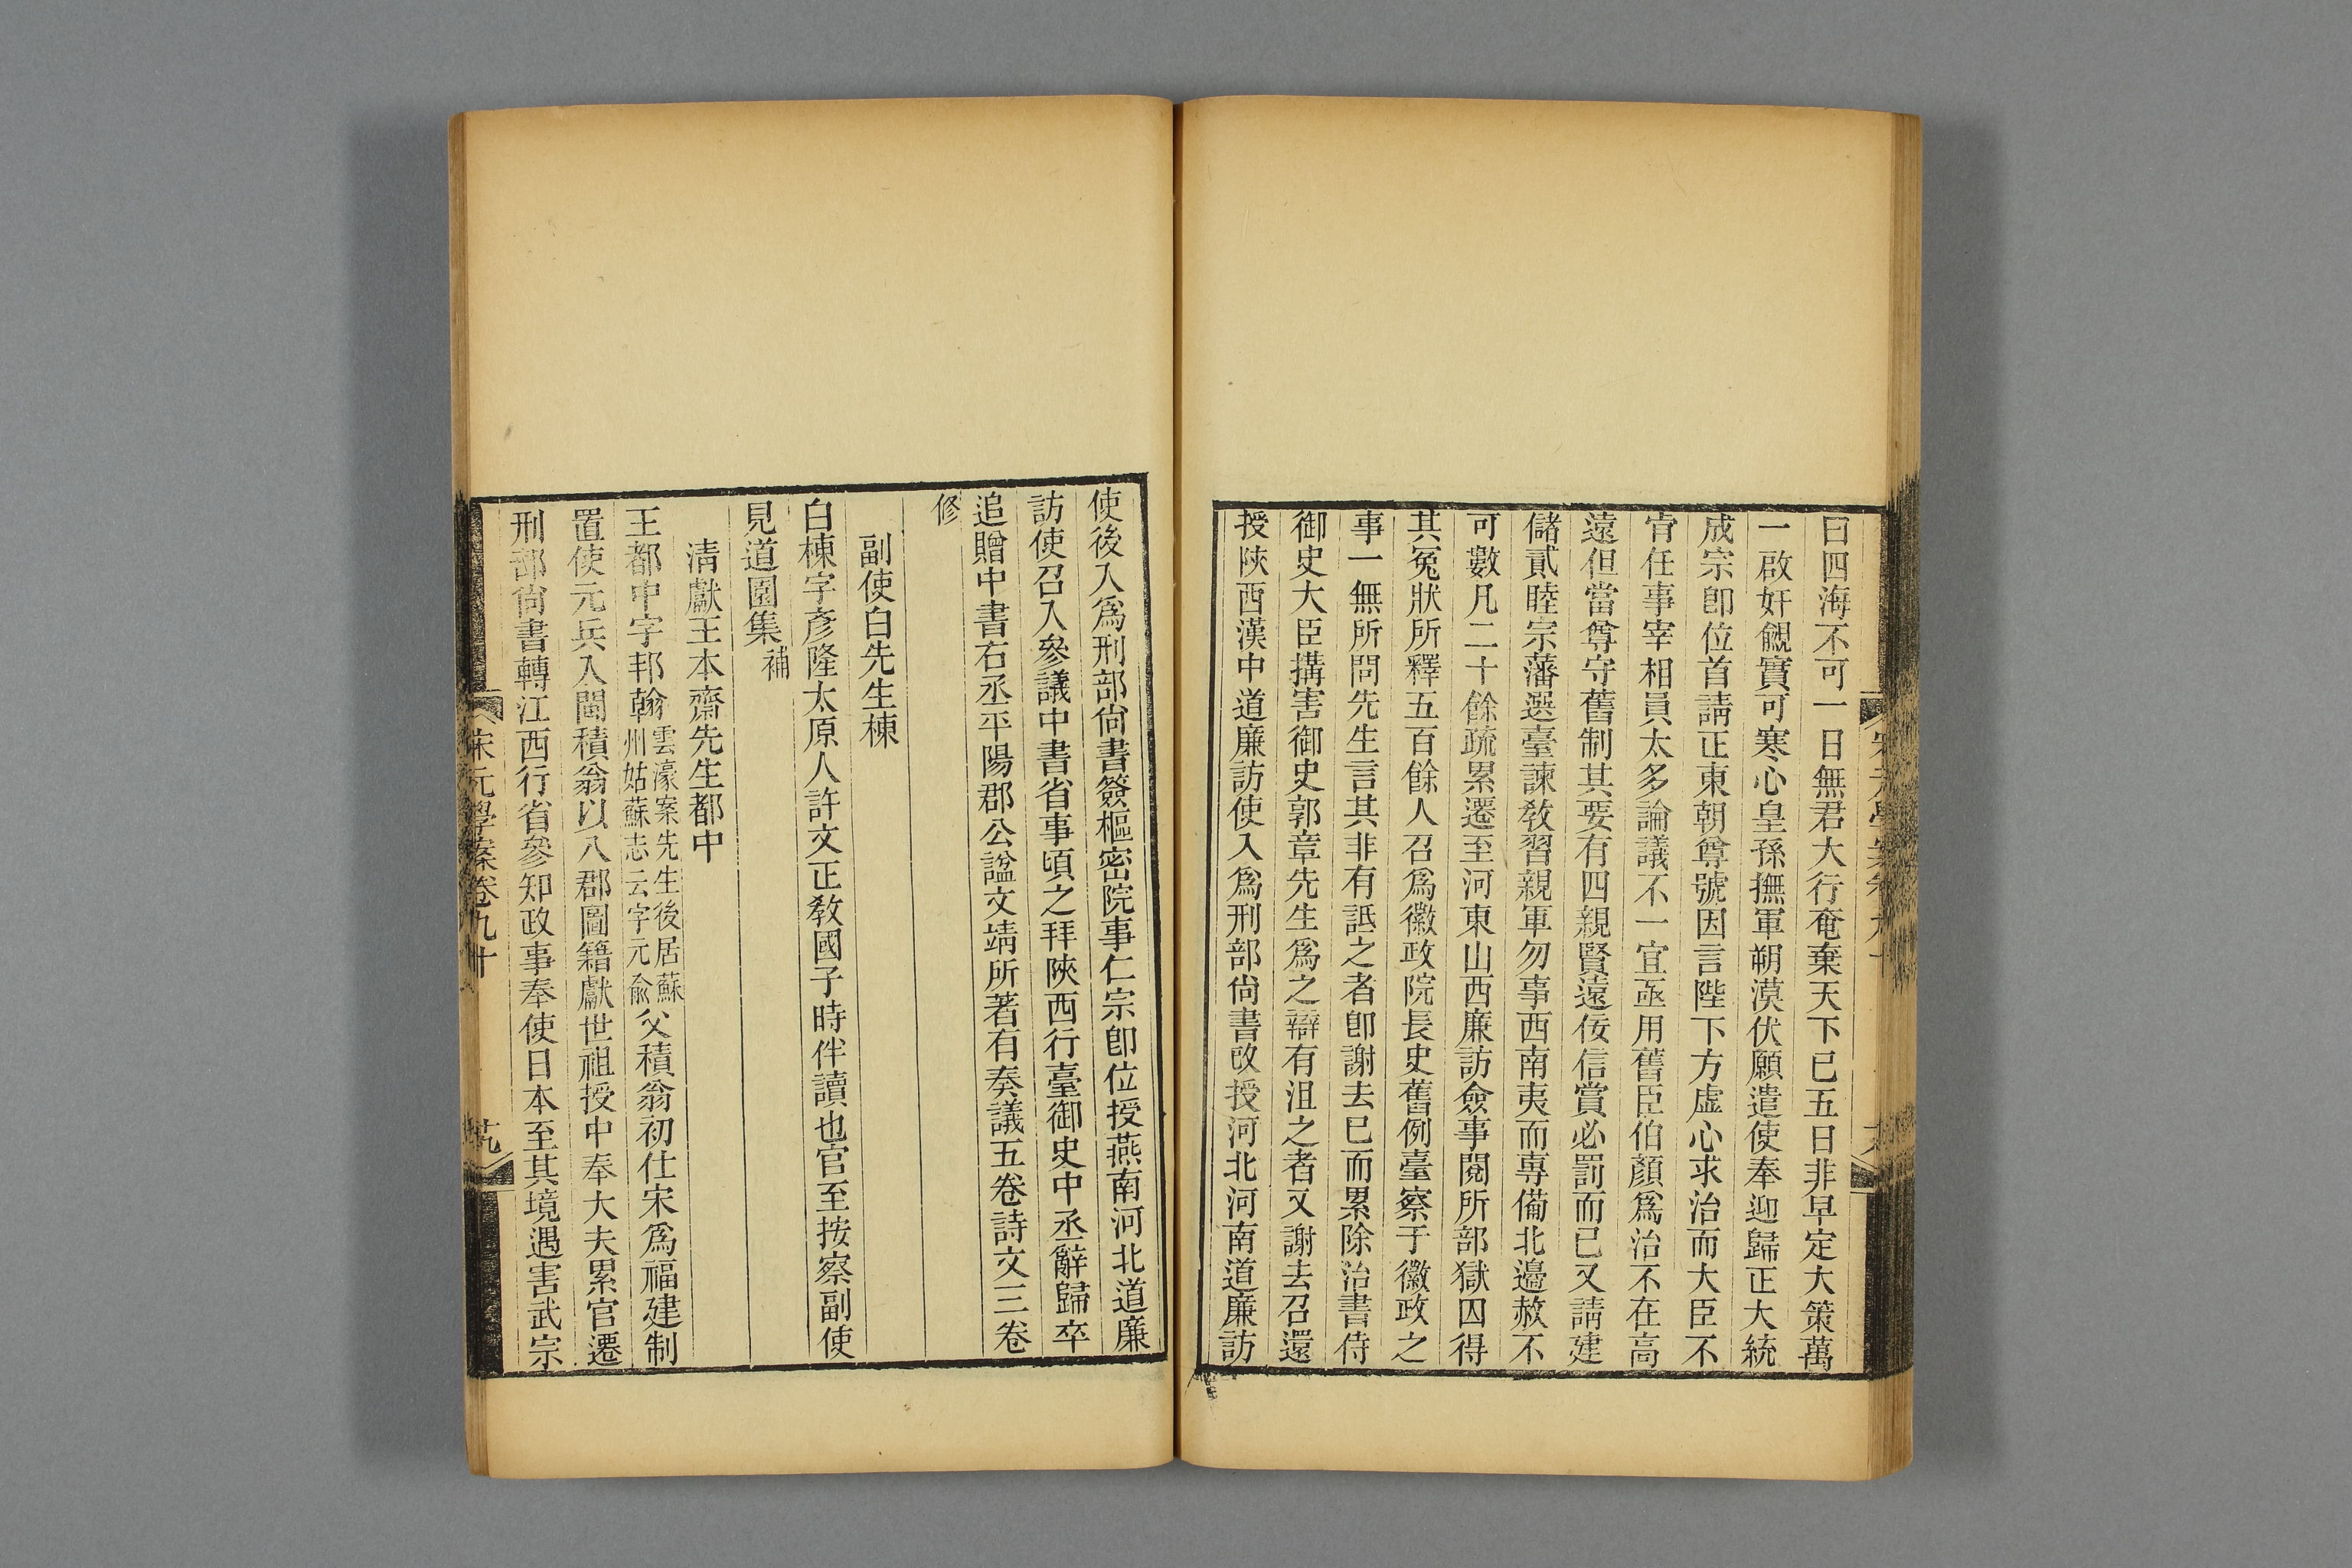 曰四海不可一日無君大行奄棄天下已五日非早定大策萬
一啟奸覦實可寒心皇孫撫軍朔漠伏願遣使奉迎歸正大統
成宗卽位首請正東朝尊號因言陛下方虛心求治而大臣不
肯任事宰相員太多論議不一宜亟用舊臣伯顏爲治不在高
遠但當尊守舊制其要有四親賢遠佞信賞必罰而已又請建
儲貳睦宗藩選臺諫敎習親軍勿事西南夷而專備北邊赦不
可數凡二十餘疏累遷至河東山西廉訪僉事閱所部獄囚得
其冤狀所釋五百餘人召爲徽政院長史舊例臺察于徽政之
事一無所問先生言其非有詆之者卽謝去已而累除治書侍
御史大臣搆害御史郭章先生爲之辯有沮之者又謝去召還
授陝西漢中道廉訪使入爲刑部尙書改授河北河南道廉訪
使後入爲刑部尙書簽樞密院事仁宗卽位授燕南河北道廉
訪使召入參議中書省事頃之拜陝西行臺御史中丞辭歸卒
追贈中書右丞平陽郡公諡文靖所著有奏議五卷詩文三卷
修
副使白先生棟
白棟字彥隆太原人許文正敎國子時伴讀也官至按察副使
見道園集補
淸獻王本齋先生都中
王都中字邦翰雲濠案先生後居蘇州姑蘇志云字元俞父積翁初仕宋爲福建制
置使元兵入閩積翁以八郡圖籍獻世祖授中奉大夫累官遷
刑部尙書轉江西行省參知政事奉使日本至其境遇害武宗
宋元學案卷九十